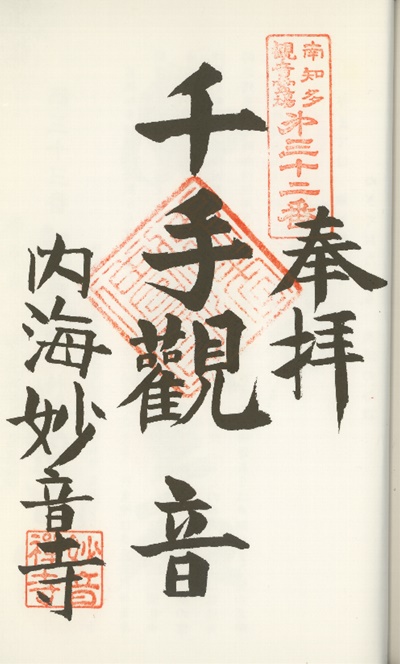 南知多
観音霊場
第三十二番
奉拝
千手觀音
内海妙音寺
妙音
禅寺